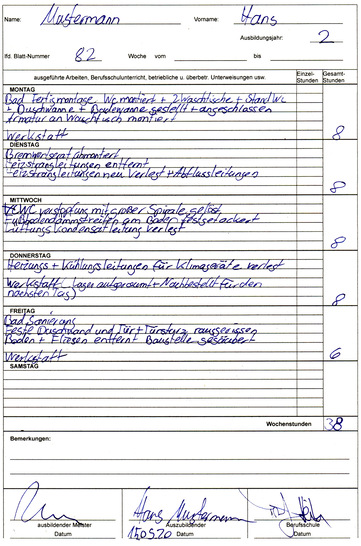 Name: Mustermann Vorname: Hans
Ausbildungsjahr: 2
lfd. Blatt-Nummer 82 Woche vom bis
ausgeführte Arbeiten, Berufsschulunterricht, betriebliche u. überbetr. Unterweisungen usw. Einzel-Stunden Gesamt-stunden
MONTAG
Bad Fertigmontage. Wc montiert + 2 Waschtische + Stand Wc
+ Duschwanne + Badewanne gestellt + angeschlossen
Armatur an Waschtisch montiert
Werkstatt 8
DIENSTAG
Brennwertgerät abmontiert
Heizstrangleitungen entfernt
Heizstrangleitungen neu Verlegt + Abflussleitungen
8
MITTWOCH
WC verstopfung mit großer Spirale gelöst
Fußbodendämmstreifen am Boden festgetackert
Lüftungskondensatleitung verlegt
8
DONNERSTAG
Heizungs + Kühlungsleitungen für Klimageräte verlegt
Werkstatt (Lager aufgeräumt + Nachbestellt für den
nächsten Tag) 8
FREITAG
Bad Sanierung
Feste Duschwand und Tür + Türstarz rausgerissen
Boden + Fliesen entfernt Baustelle gesäubert
Werkstatt 6
SAMSTAG
Wochenstunden 38
Bemerkungen:
Hans Mustermann
ausbildender Meister Auszubildender Berufsschule
Datum 150520 Datum Datum